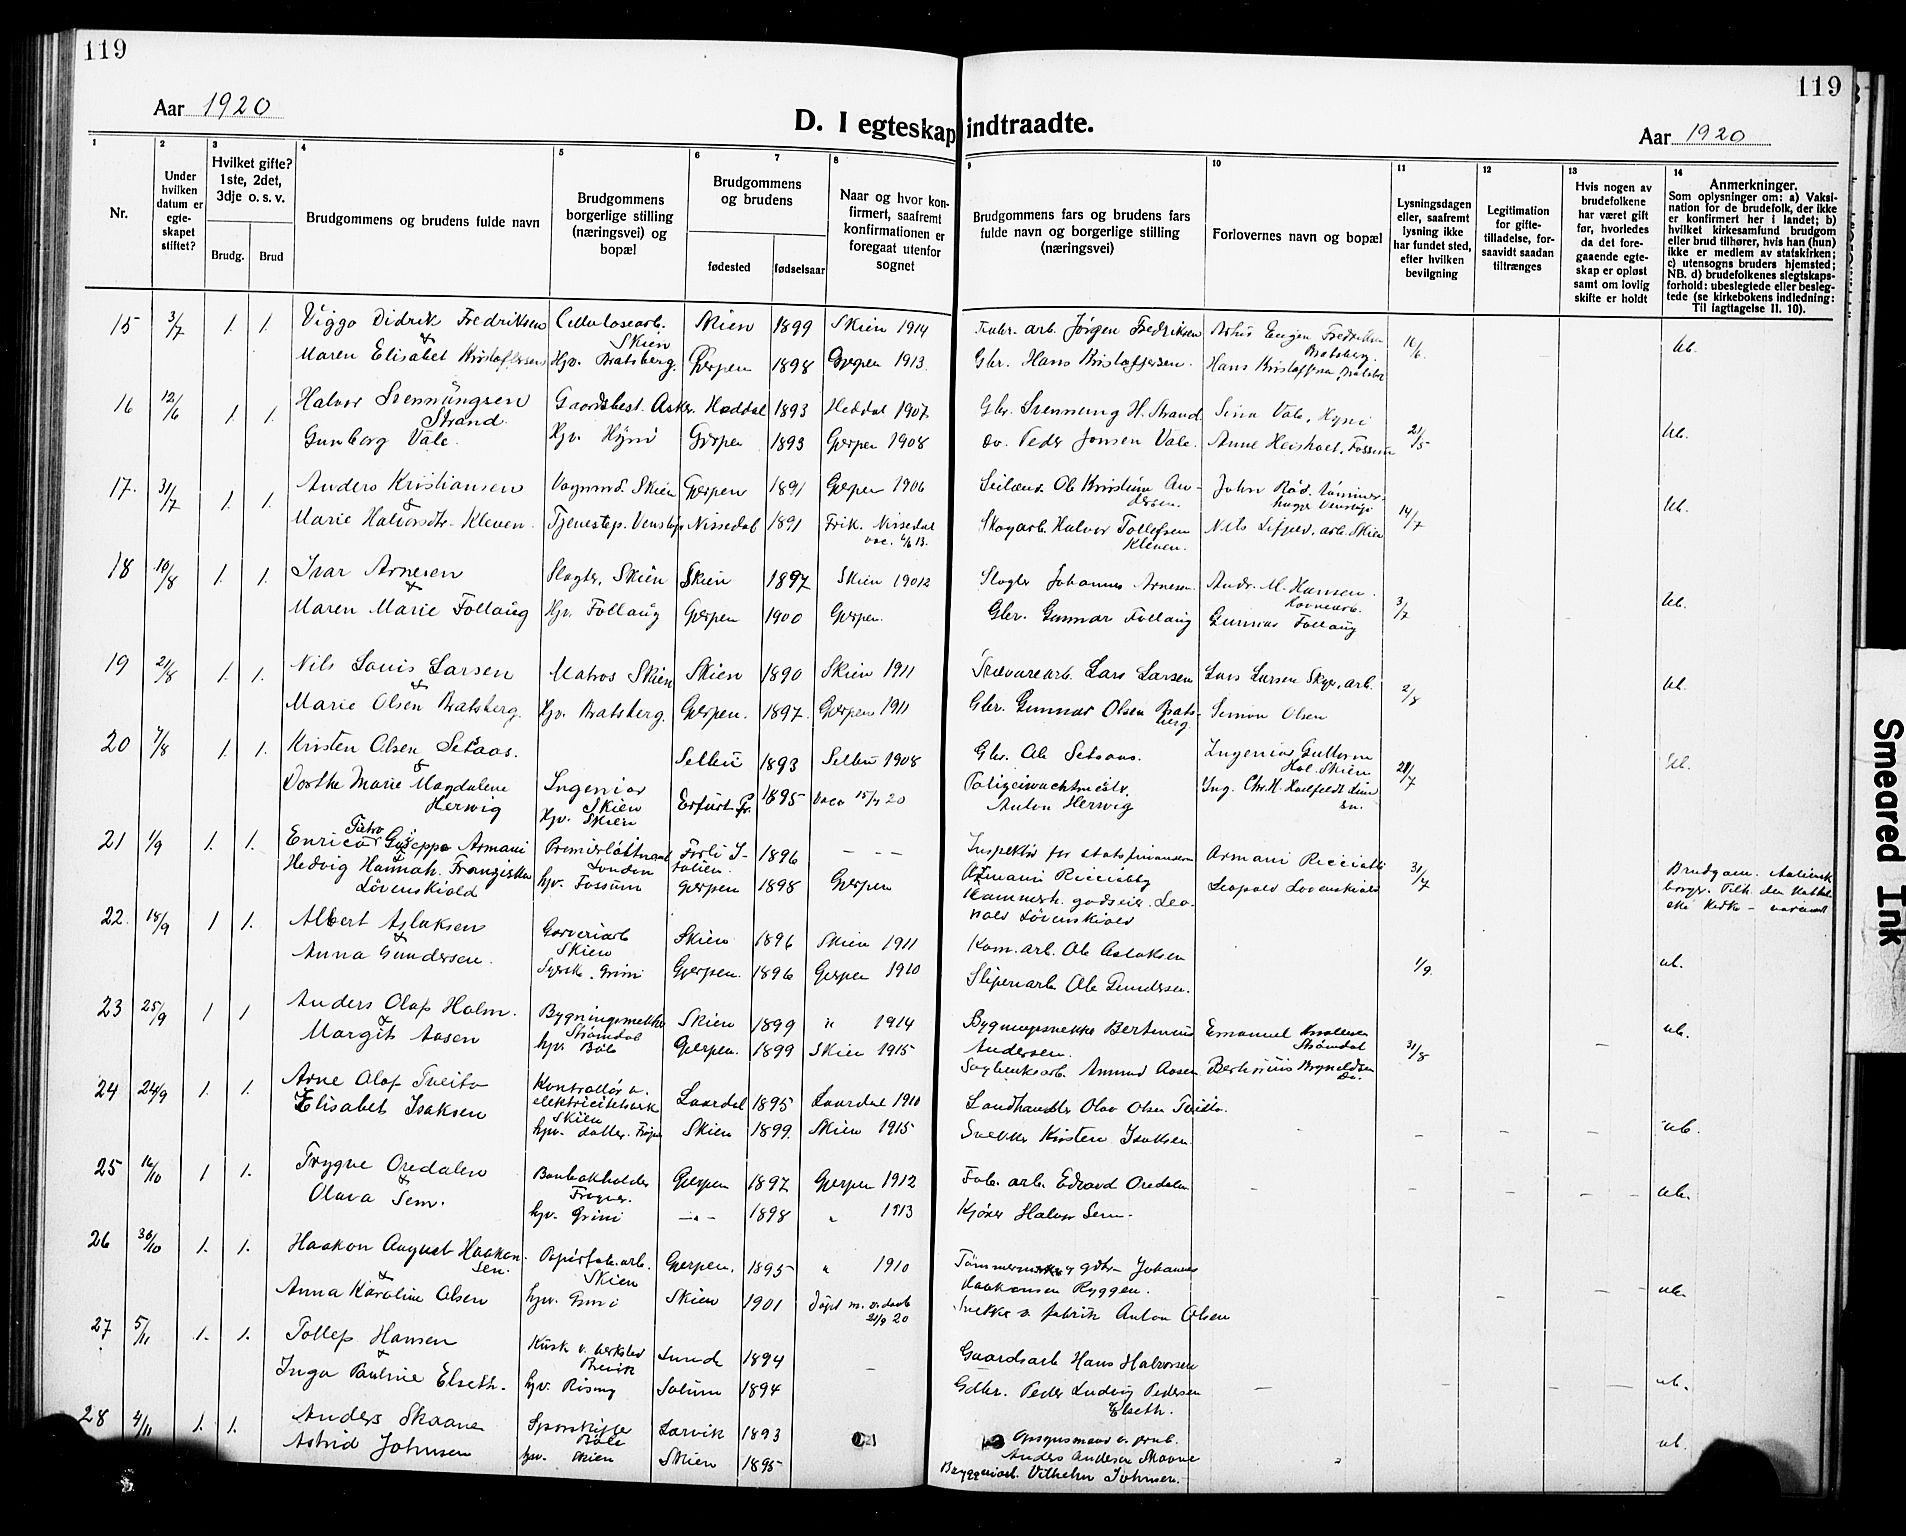 119
119
Aar 1920
D. I egteskap indtraadte.
Aar 1920
1
Nr.
2
Under
hvilken
datum er
egte-
skapet
stiftet?
3
Hvilket gifte?
1ste, 2det,
3dje o. s. v.
Brudg.
Brud
4
Brudgommens og brudens fulde navn
5
Brudgommens
borgerlige stilling
(næringsvei) og
bopæl
6
7
Brudgommens
og brudens
fødested
fødselsaar
8
Naar og hvor kon-
firmert, saafremt
konfirmationen er
foregaat utenfor
sognet
9
Brudgommens fars og brudens fars
fulde navn og borgerlige stilling
(næringsvei)
10
Forlovernes navn og bopæl
11
Lysningsdagen
eller, saafremt
lysning ikke
har fundet sted,
efter hvilken
bevilgning
12
Legitimation
for gifte-
tilladelse, for-
saavidt saadan
tiltrænges
13
Hvis nogen av
brudefolkene
har været gift
før, hvorledes
da det fore-
gaaende egte-
skap er opløst
samt om lovlig
skifte er holdt
14
Anmerkninger.
Som oplysninger om: a) Vaksi-
nation for de brudefolk, der ikke
er konfirmert her i landet; b)
hvilket kirkesamfund brudgom
eller brud tilhører, hvis han (hun)
ikke er medlem av statskirken;
c) utensogns bruders hjemsted;
NB. d) brudefolkenes slegtskaps-
forhold: ubeslegtede eller besleg-
tede (se kirkebokens indledning:
Til iagttagelse II. 10).
15 3/7 1. 1. Viggo Didrik Fredriksen Cellulosearb. Skien Skien 1899 Skien 1914 Jørgen Fredriksen Eugen Fredriksen Bratsberg. 16/6 Ub.
& Maren Elisabet Kristoffersen Hjv. Bratsberg. Gjerpen 1898 Gjerpen 1913. Gbr. Hans Kristoffersen. Hans Kristoffersen, Bratsbg
16 12/6 1. 1. Halvor Svenningsen Strand. Gaardbest. Asker. Heddal 1893 Heddal 1907. Gbr. Svenning H. Strand Vale, Hyni 21/5 Ub.
Gunborg Vale. Hjv. Hyni Gjerpen 1893 Gjerpen 1908 Peder Jonsen Vale. Anne Heisholt, Fossum
17. 31/7 1. 1. Anders Kristiansen Vognmd. Skien Gjerpen 1891 Gjerpen 1906 Ole Kristian An-
dersen. John Rød. tømmer-
hugger Venstøp 14/7 Ub.
& Marie Halvorsdtr. Kleven. Tjenestep. Venstøp Nissedal 1891 Frik. Nissedal
vac. 4/6 13. Skogarb. Halvor Tollefsen
Kleven. Nils arb. Skien
18 10/8 1. 1. Ivar Arnesen Slagter, Skien Skien 1897 Skien 19012 Slagter Johannes Arnesen. Andr. M. Hansen.
Havnearb. 3/7 Ub.
& Maren Marie Follaug Hjv. Follaug Gjerpen 1900 Gjerpen. Gbr. Gunnar Follaug Gunnar Follaug
19 21/8 1. 1. Nils Louis Larsen Matros Skien Skien 1890 Skien 1911 Trævarearb. Lars Larsen Lars Larsen Skyer, arb. 2/8 Ub.
& Marie Olsen Bratsberg. Hjv. Bratsberg. Gjerpen. 1897. Gjerpen 1911 Gbr. Gunnar Olsen Brats-
berg Simon Olsen
20 7/8 1. 1. Kristen Olsen Setsaas. Selbu 1893 Selbu 1908 Gbr. Ole Setsaas. Ingeniør Guttorm
Hol. Skien 21/7 Ub.
& Dorthe Marie Magdalene
Herwig Ingeniør
Skien
Hjv. Skien Erfurt Pr. 1895 Vacc 15/7 20 Polizeiwachtmeistr.
Anton Herwig Ing. Chr. H.
21 1/9 1. 1. Enrico Pietro Guseppe Armani Premierløitnant
London Forli I-
talien. 1896 — — — Inspektør for statsfinansen
Armani Ricciotti Armani Ricciotti 31/7 Brudgom. italiensk
borger. Tilh. den katol
ske kirke
& Hedvig Hannah Franziska
Løvenskiold hjv. Fossum Gjerpen 1898 Gjerpen Kammerh. godseier Leo-
pold Løvenskiold Leopold Løvenskiold
22. 18/9 1 1. Albert Aslaksen Garveriarb
Skien Skien 1896 Skien 1911 Kom. arb. Ole Aslaksen 1/9. ub.
& Anna Gundersen. Syersk. Grini Gjerpen. 1896 Gjerpen 1910 Sliperiarb Ole Gundersen.
23 25/9 1 1 Anders Olaf Holm. Bygningssnekker
Strømdal Skien 1899 " 1914 Bygningssnekker Bertinius
Andersen. Emanuel
Strømdal 31/8 — ub.
& Margit Aasen hjv. Bøle Gjerpen. 1899 Skien 1915 Sagbruksarb. Amund Aasen Bertinius Bryneldsen
Do.
24 24/9 1. 1. Arne Olaf Tveito Kontrollør v.
elektricitetsverk
Skien Laardal 1895 Laardal 1910 Landhandler Olav Olsen Tveito.
& Elisabet Isaksen hjv. datter. Skien 1899. Skien 1915 Snekker Kristen Isaksen. — — — — ub.
25 16/10 1 1. Trygve Oredalen Bankbokholder
Frogner. Gjerpen 1897 Gjerpen 1912 Fab. arb. Edvard Oredalen — — — — ub.
& Olava Sem. hjv. Grini —"— 1898 " 1913 Kjører Halvor Sem.
26 30/10 1. 1. Haakon August Haakon-
sen. Papirfab. arb.
Skien Gjerpen. 1895 " 1910 Tømmermand Johannes
Haakonsen Ryggen. — — — ub.
& Anna Karoline Olsen hjv. Grini Skien 1901 Døpt
21/9 20 Snekker v. fabrik Anton Olsen
27 5/11 1. 1. Tollef Hansen Kusk v. verksted
Skien Lunde 1894 — Gaardsarb Hans Halvorsen
& Inga Pauline Elseth. hjv. Rising Solum 1894 Gdbr. Peder Ludvig Pedersen
Elseth. — — — — ub.
28 4/11 1. 1. Anders Skaane
Bøle Larvik 1893 Opsynsmand v. brub.
Anders Andersen Skaane ub.
Astrid Johnsen hjv. Skien Skien 1895 Bryggeriarb. Vilhelm Johnsen.
Smeared Ink